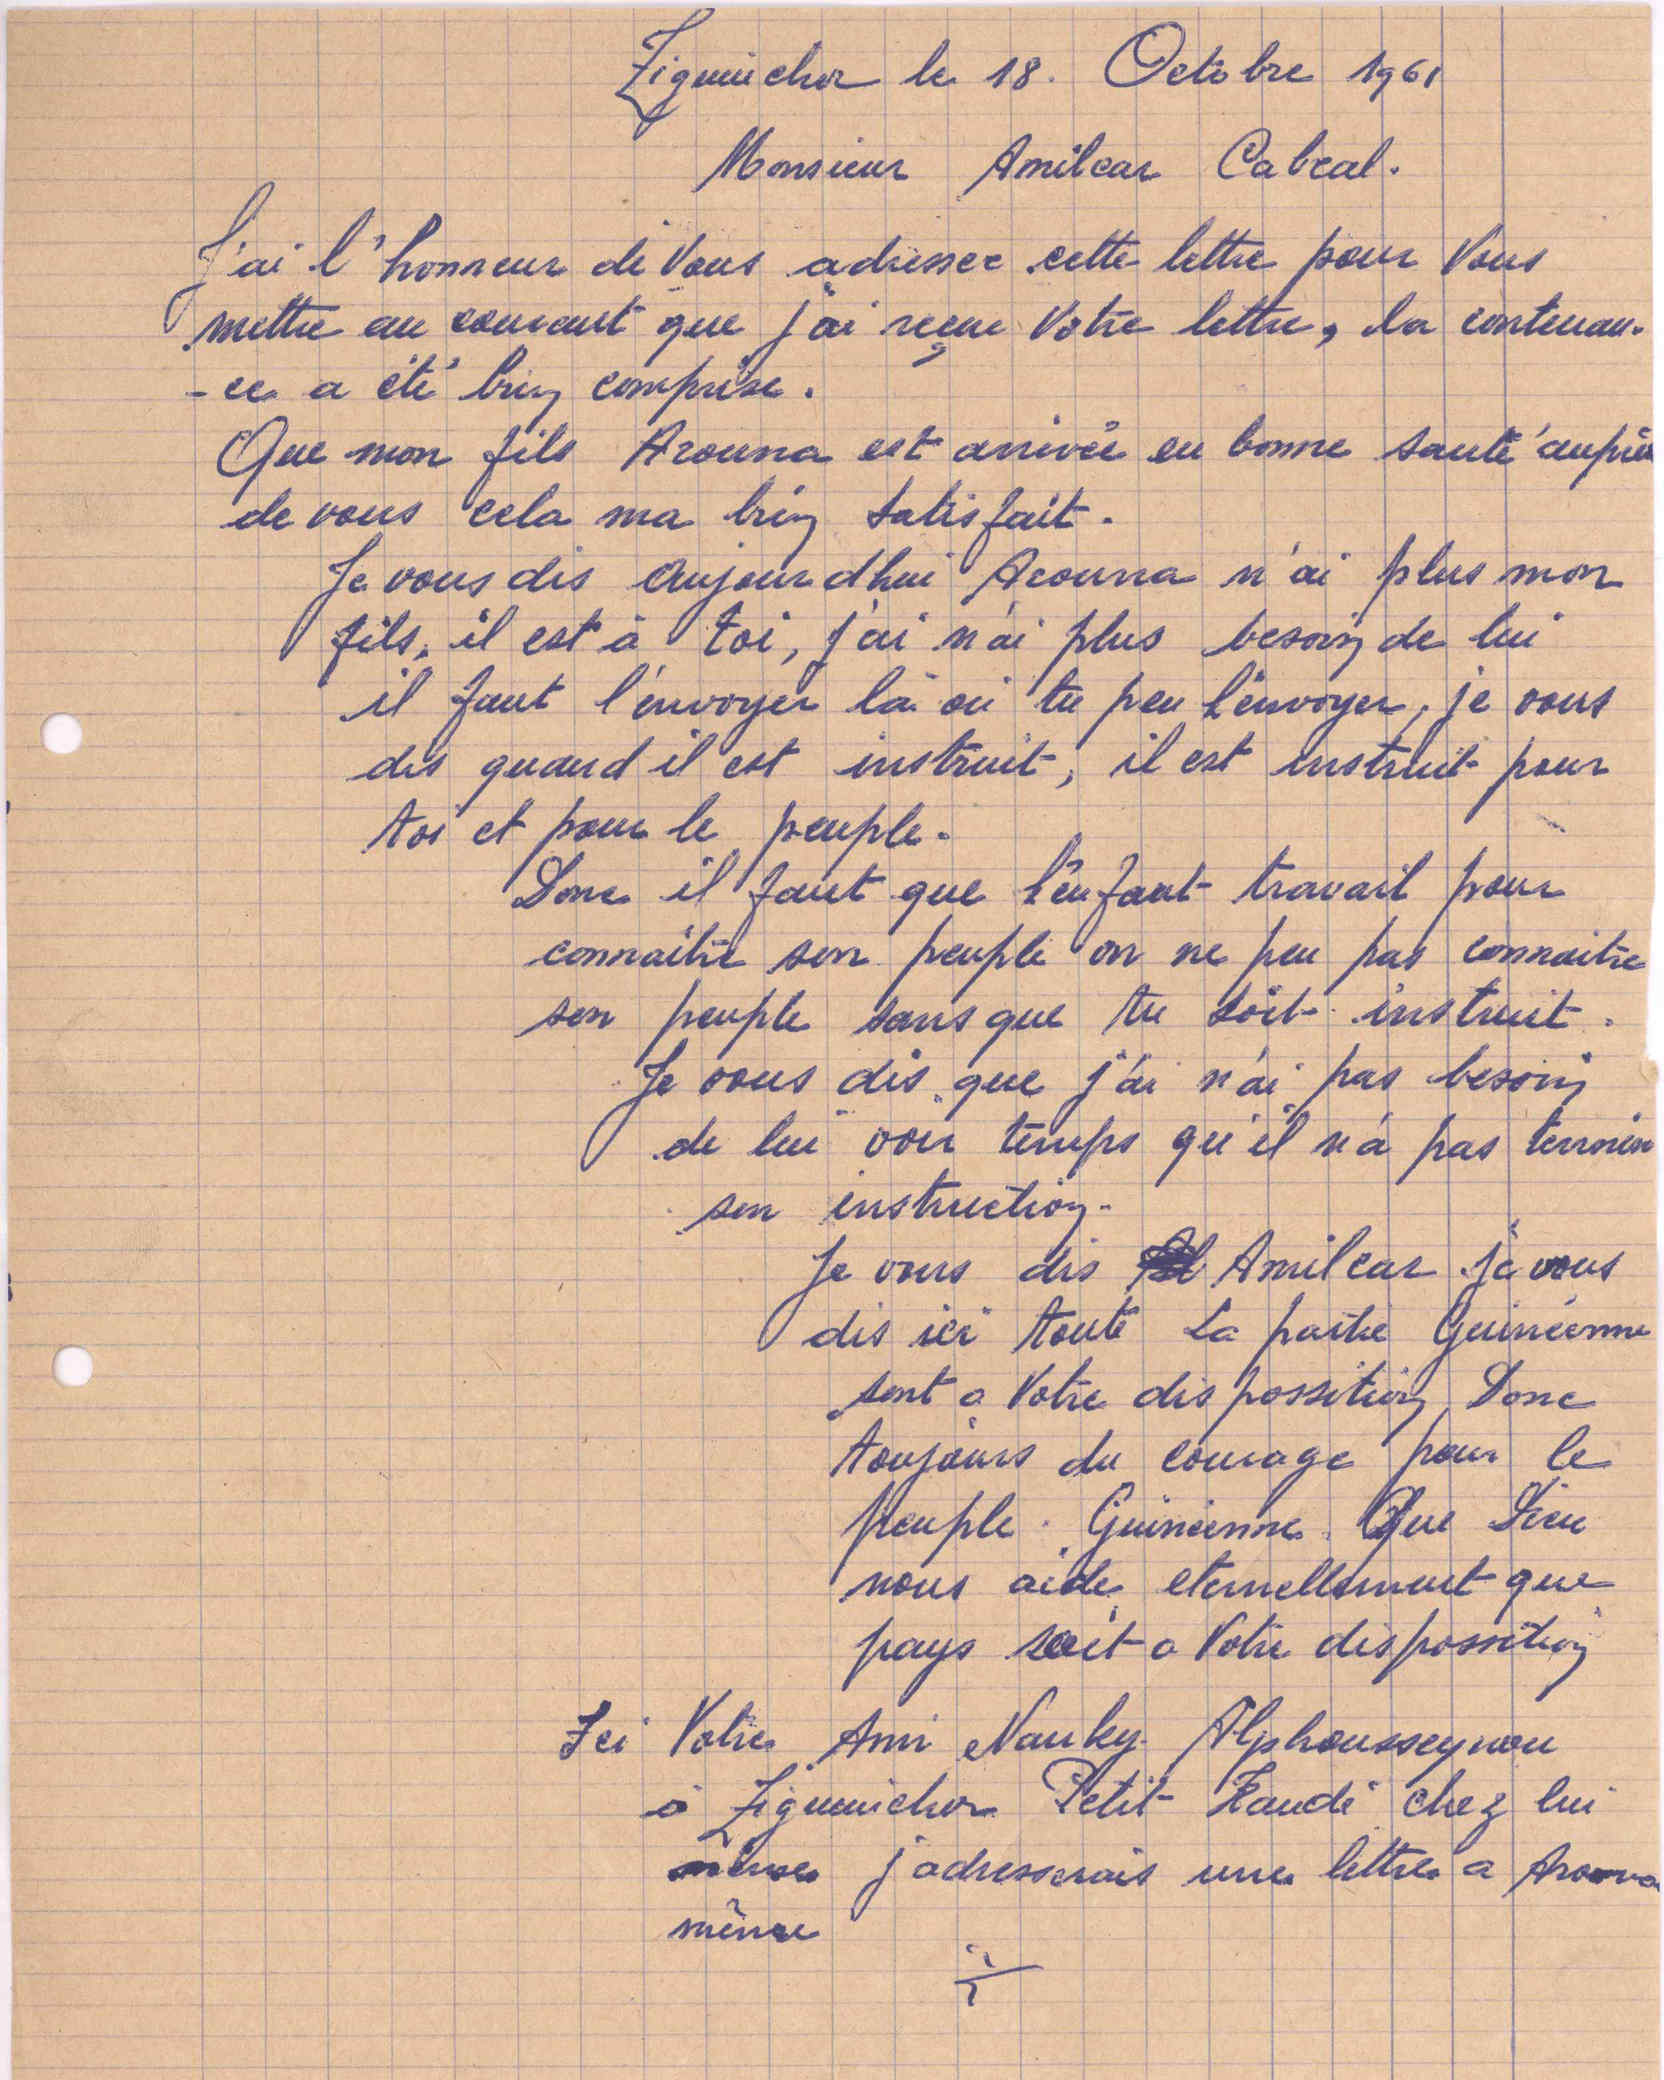 Ziguinchor le 18. Octobre 1961
Monsieur Amilcar Cabral.
J'ai l'honneur de Vous adresser cette lettre pour Vous
mettre au courant que j'ai reçue Votre lettre, la contenan-
-ce a été bien comprise.
Que mon fils Arouna est arrivée en bonne santé auprès
de vous cela ma bien satisfait.
Je vous dis aujourd'hui Arouna n'ai plus mon
fils, il est à toi, j'ai n'ai plus besoin de lui
il faut l'envoyer là où tu peu l'envoyer, je vous
dis quand il est instruit, il est instruit pour
toi et pour le peuple.
Donc il faut que l'enfant travail pour
connaitre son peuple on ne peu pas connaitre
son peuple sans que tu soit instruit.
Je vous dis que j'ai n'ai pas besoin
de lui voir temps qu'il n'a pas terminer
son instruction.
Je vous dis Amilcar je vous
dis ici toute La partie Guinéenne
sont a Votre dispossition Donc
toujours du courage pour le
peuple Guinéenne. Que Dieu
nous aide eternellement que
pays soit a Votre dispossition
Ici Votre Ami Nanky Alphousseynou
à Ziguinchor Petit Kandé chez lui
même j'adresserais une lettre a Arouna
même